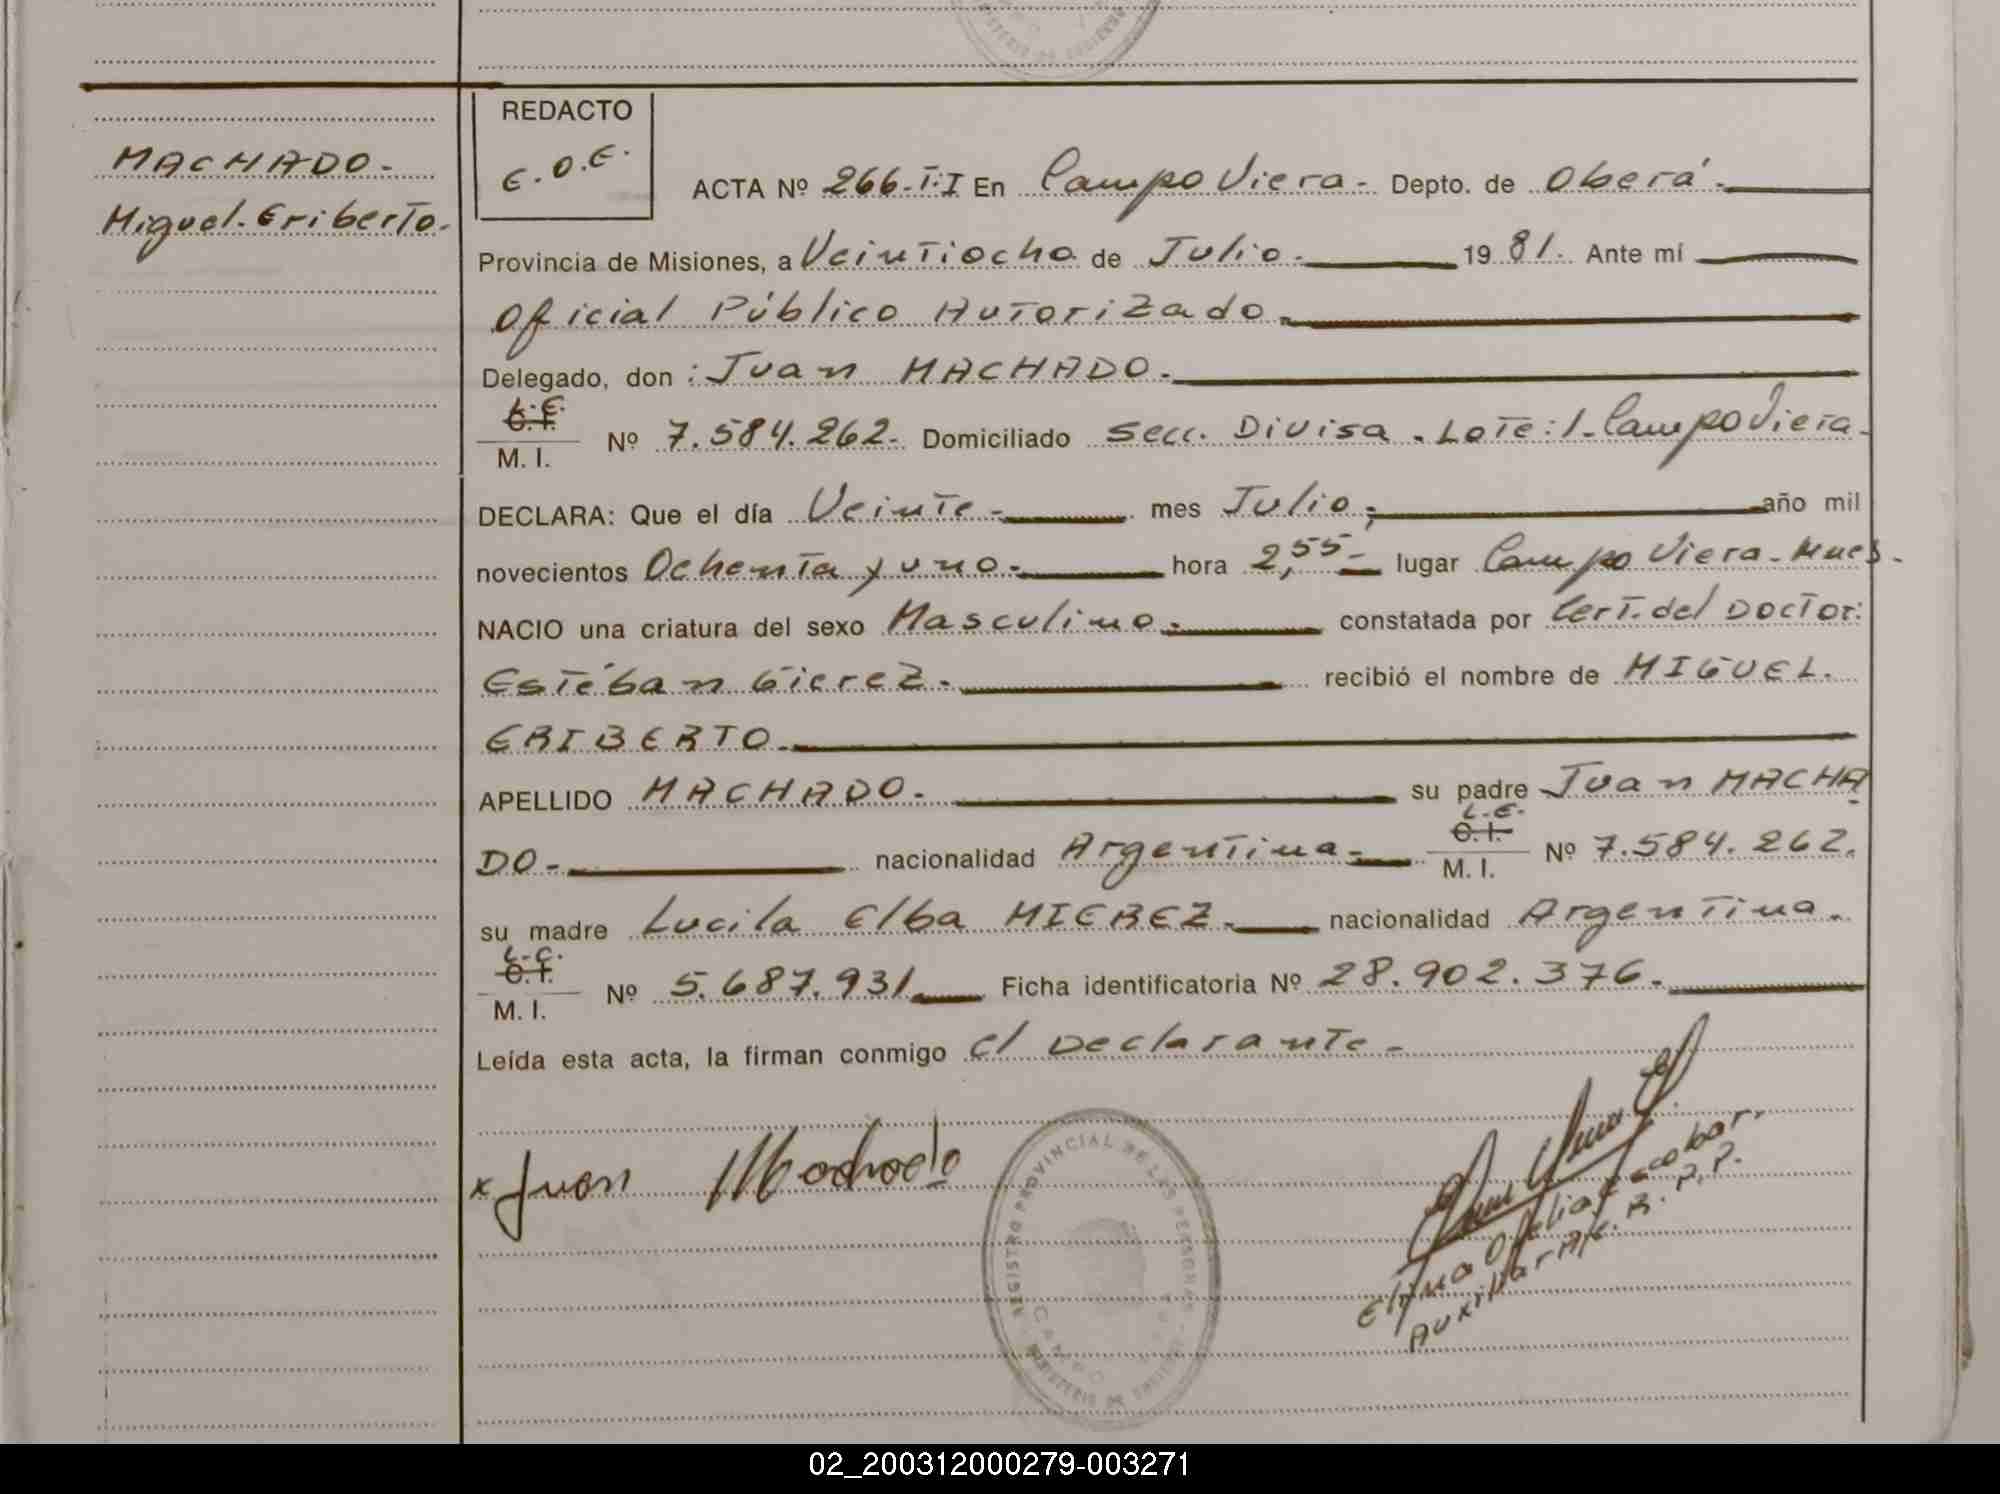 MACHADO.-
Miguel. Eriberto.-
REDACTO
E.O.E.
ACTA Nº 266-T:I En Campo Viera.- Depto. de Oberá.-
Provincia de Misiones, a Veintiocho de Julio.- 1981. Ante mí
Oficial Público Autorizado.-
Delegado, don : Juan MACHADO.-
L.E.
C.I.
M. I. Nº 7.584.262.- Domiciliado Secc. Divisa . Lote:1.- Campo Viera.-
DECLARA: Que el día Veinte.- mes Julio; año mil
novecientos Ochenta y uno.- hora 2,55- lugar Campo Viera.- Mnes.-
NACIO una criatura del sexo Masculino.- constatada por Cert. del Doctor:
Estéban Gierez.- recibió el nombre de MIGUEL.
ERIBERTO.-
APELLIDO MACHADO.- su padre Juan MACHA
L.E.
C.I.
DO.- nacionalidad Argentina.- M. I. Nº 7.584.262.
su madre Lucila Elba MIEREZ.- nacionalidad Argentina.-
L.C.
C.I.
M. I. Nº 5.687.931.- Ficha identificatoria Nº 28.902.376.-
Leída esta acta, la firman conmigo el Declarante.-
x Juan Machado
REGISTRO PROVINCIAL DE LAS PERSONAS
CAMPO
MINISTERIO DE
Ofelia Escobar.
Auxiliar R.P.P.
02_200312000279-003271